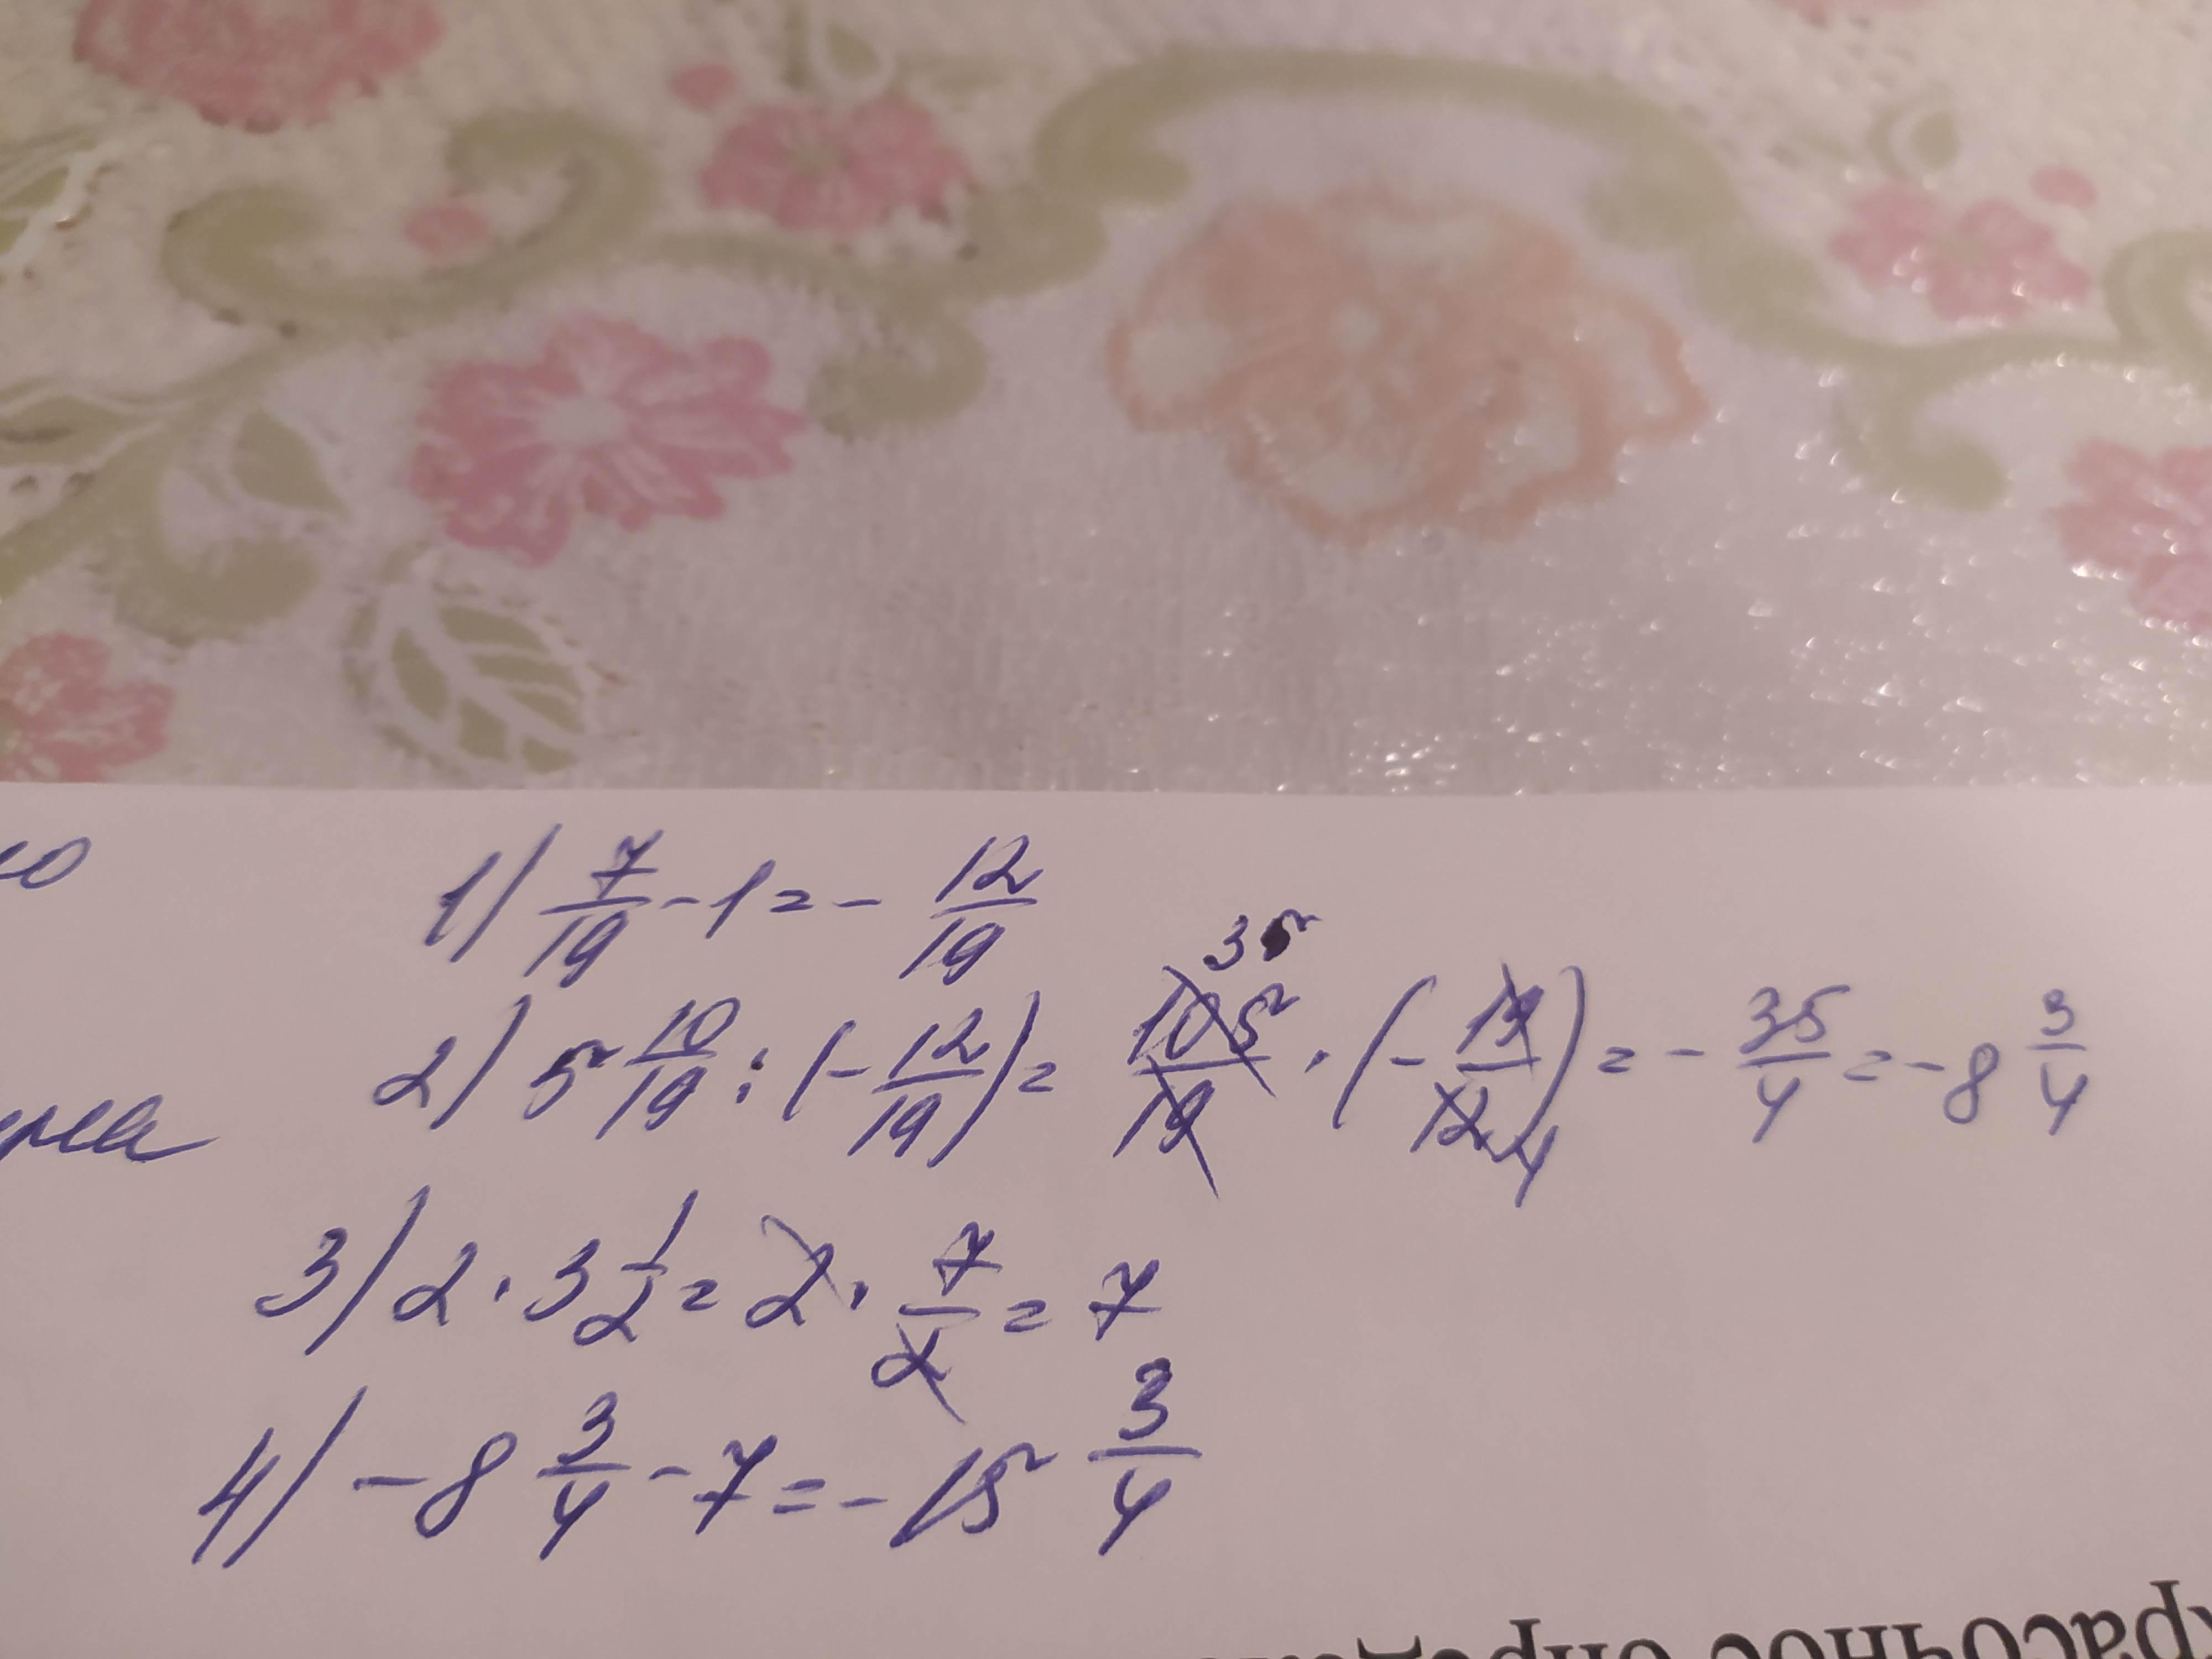 1) 7/19 - 1 = - 12/19
2) 5 10/19 : (- 12/19) = 105/19 · (- 19/12) = - 35/4 = - 8 3/4
35
4
3) 2 · 3 1/2 = 2 · 7/2 = 7
4) - 8 3/4 - 7 = - 15 3/4